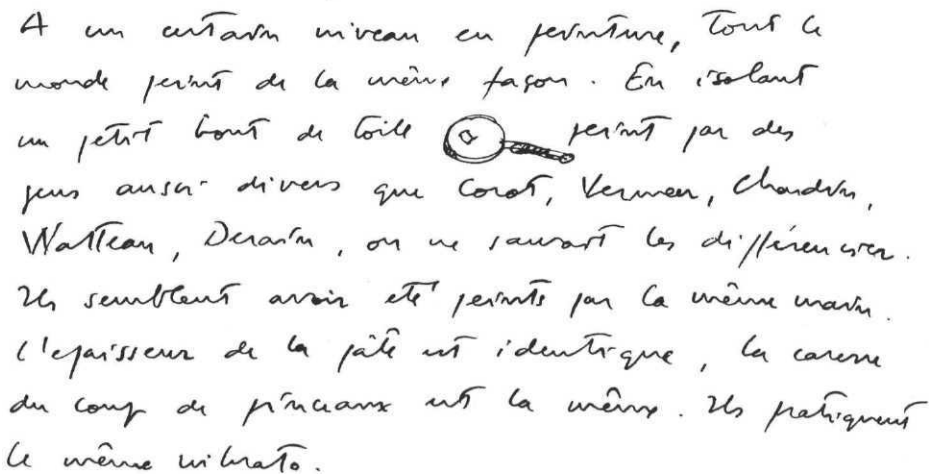 A un certain niveau en peinture, Tout le
monde peint de la même façon. En isolant
un petit bout de toile peint par des
gens aussi divers que Corot, Vermeer, Chardin,
Watteau, Derain, on ne saurait les différencier.
Ils semblent avoir été peints par la même main.
L'épaisseur de la pâte est identique, la caresse
du coup de pinceaux est la même. Ils pratiquent
le même vibrato.